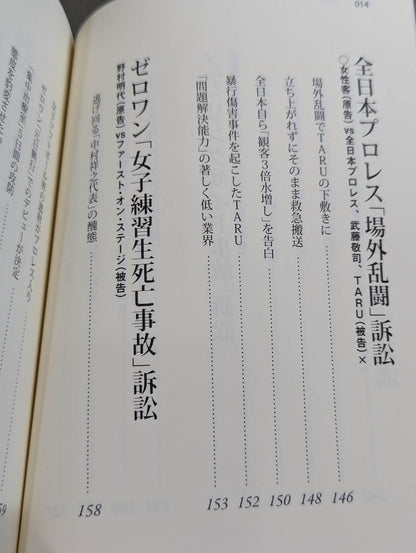 014
全日本プロレス「場外乱闘」訴訟
○女性客(原告)vs全日本プロレス、武藤敬司、TARU(被告)×
場外乱闘でTARUの下敷きに 146
立ち上がれずにそのまま救急搬送 148
全日本自ら「観客3倍水増し」を告白 150
暴行傷害事件を起こしたTARU 152
「問題解決能力」の著しく低い業界 153
ゼロワン「女子練習生死亡事故」訴訟
野村明代(原告)vsファースト・オン・ステージ(被告)
逃げ回る「中村祥之代表」の醜態 158
ゼロワン「次回興行」でのデビューが決定
「集中治療室」5日間の攻防